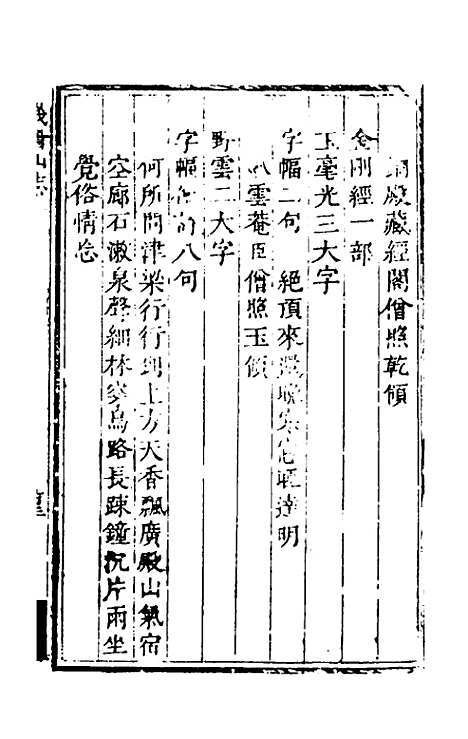 銅殿藏經閣僧照乾領
金剛經一部
玉毫光三大字
字幅二句　絕頂來還晚寒窗睡達明
臥雲菴臣僧照玉領
野雲二大字
字幅　八句
何所問津梁行行到上方天香飄廣殿山氣宿
空廊石漱泉聲細林穿鳥路長疎鐘沉片雨坐
覺俗情忘
峨眉山志